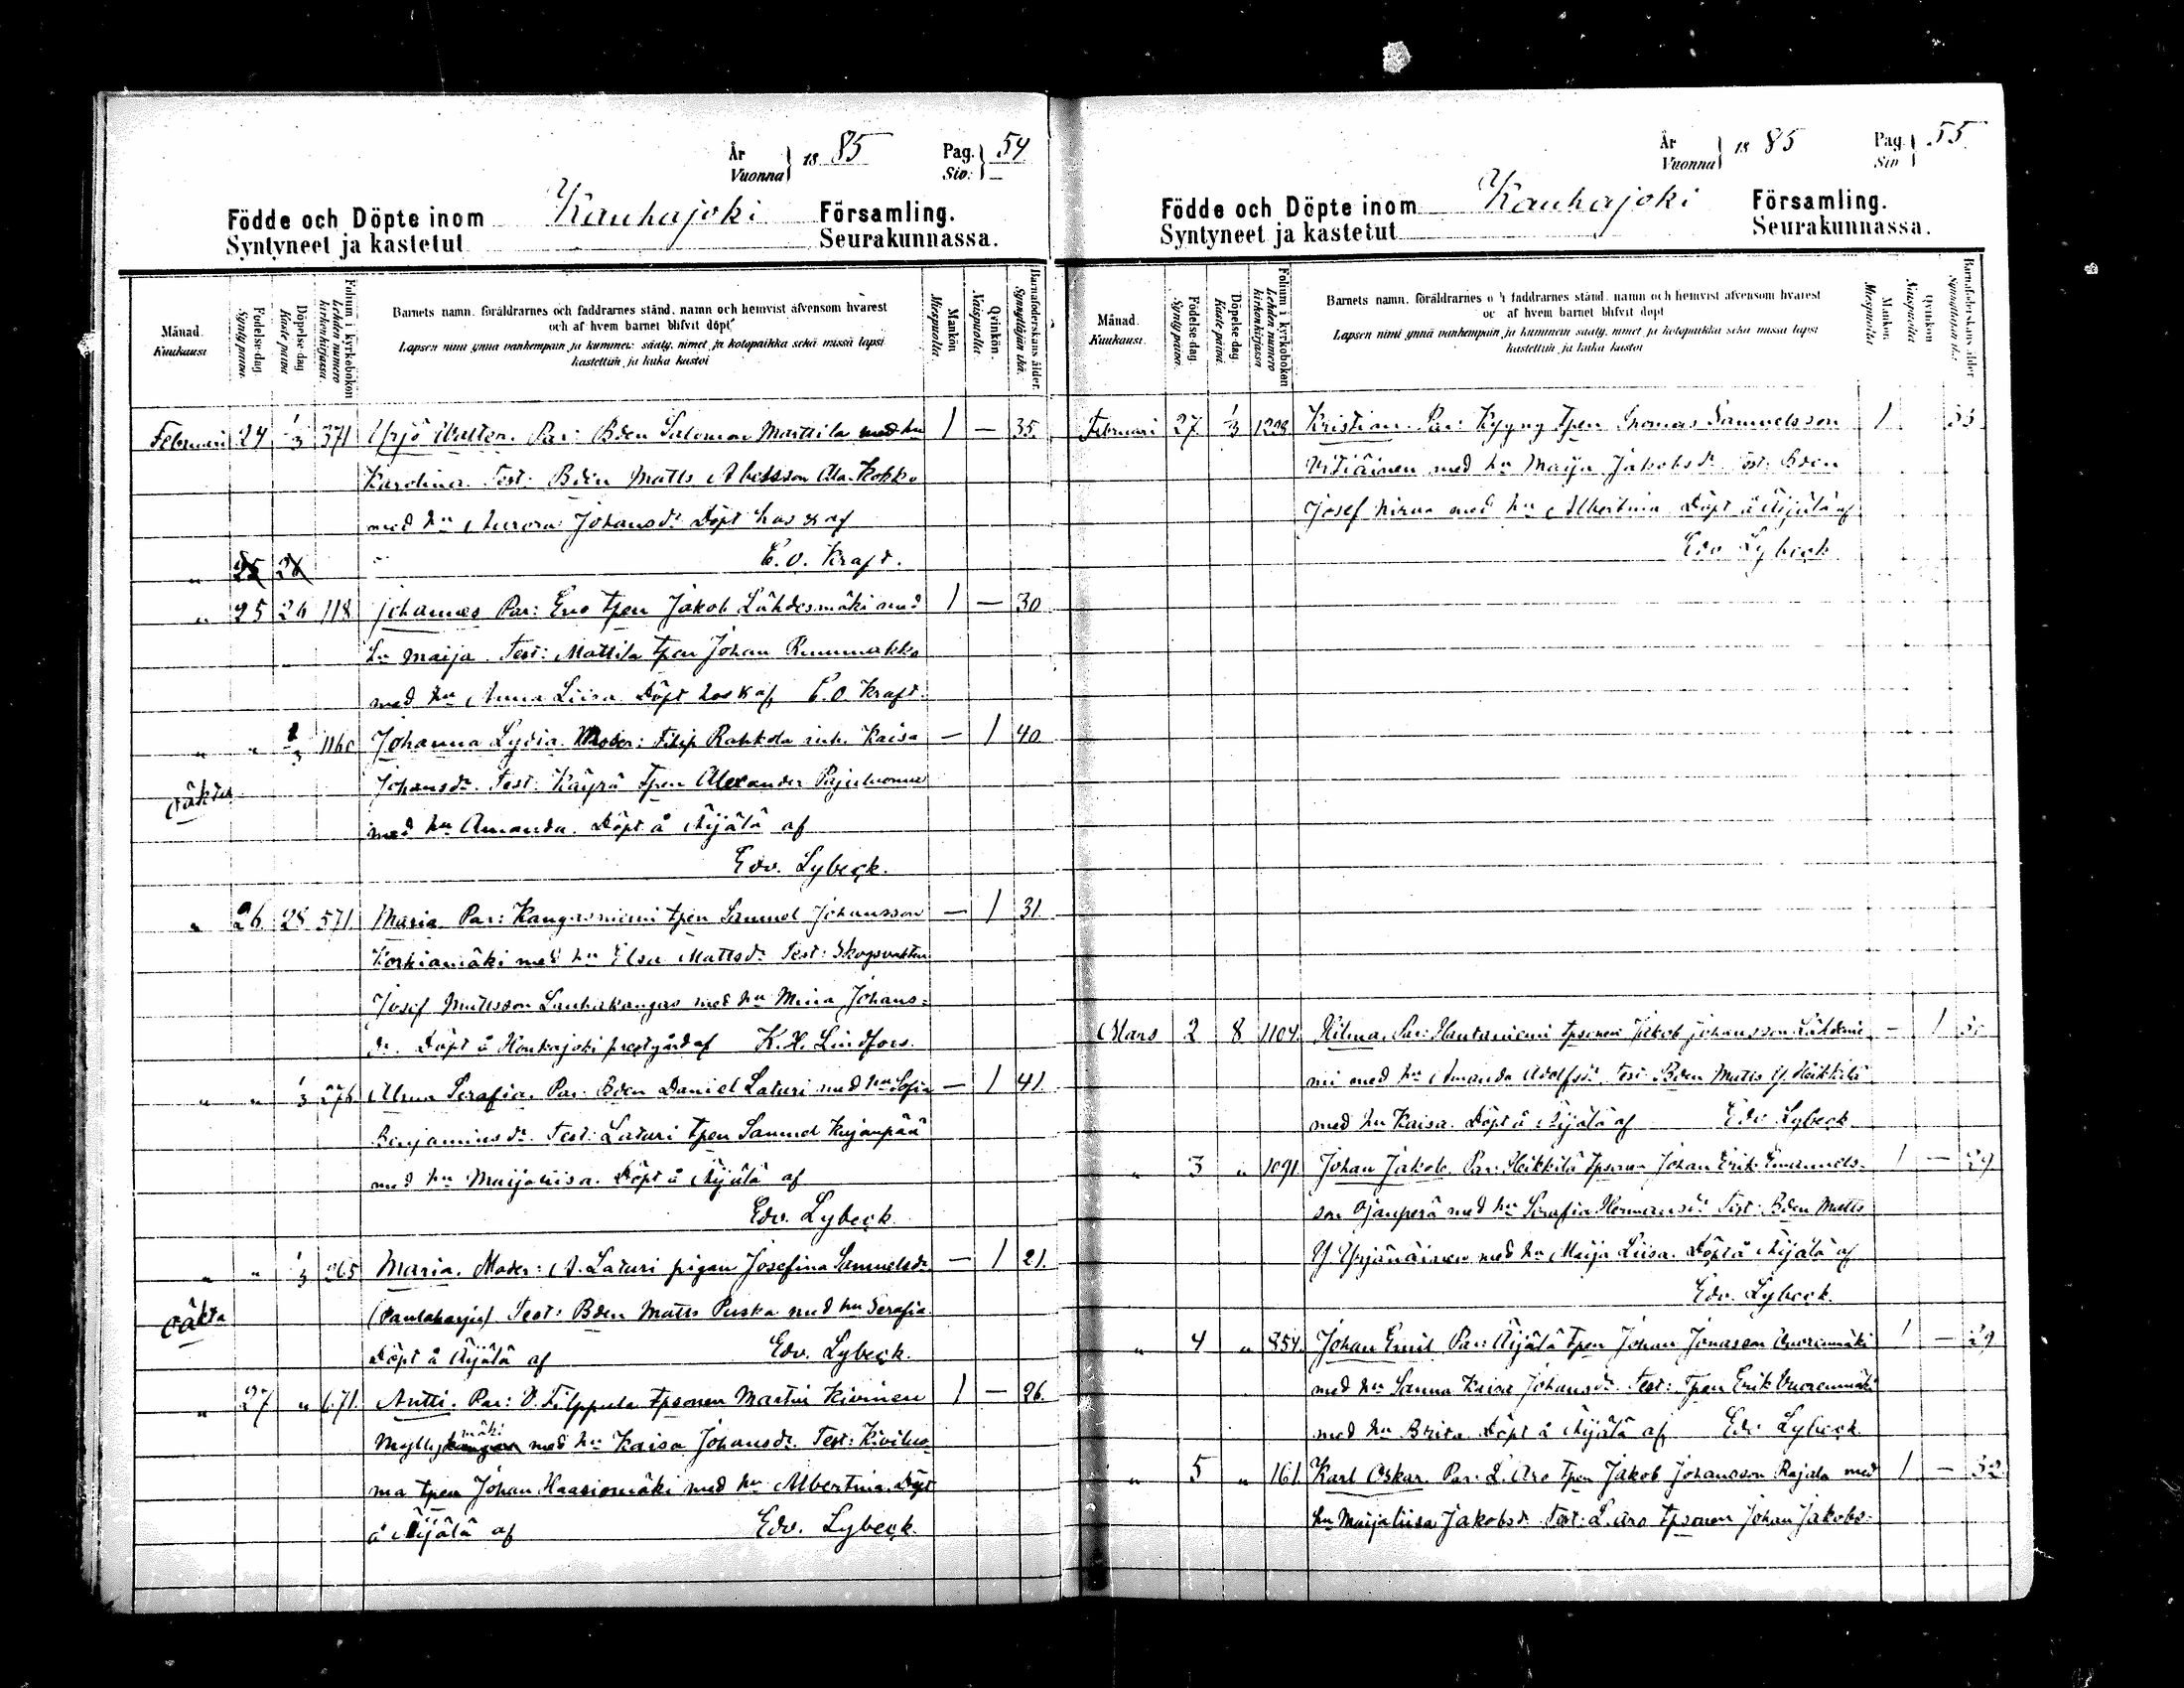 År
Vuonna } 18 85 Pag.
Siv. } 54
Födde och Döpte inom Kauhajoki Församling.
Syntyneet ja kastetut Seurakunnassa.
Månad.
Kuukausi
Födelse-dag.
Synty päivä.
Döpelse-dag
Kaste päivä
Folium i kyrkoboken
Lehden numero
kirkonkirjassa.
Barnets namn, föräldrarnes och faddrarnes stånd, namn och hemvist äfvensom hvarest
och af hvem barnet blifvit döpt
Lapsen nimi ynnä vanhempain ja kummein sääty, nimet ja kotopaikka sekä missä lapsi
kastettiin ja kuka kastoi
Mankön
Miespuolia
Qvinkön.
Naispuolia.
Barnaföderskans ålder.
Synnyttäjän ikä.
Februari 24 1/3 371 Yrjö Walter. Par: Bden Salomon Marttila med hu 1 — 35.
Karolina. Test: Bden Matts Abelsson Ala-Kokko
med hu Aurora Johansdr Döpt hos K af
" 25 26 E. O. Kraft.
" 25 26 118 Johannes Par: Eno tpen Jakob Lähdesmäki med 1 — 30
hu Maija. Test: Mattila tpen Johan Rummukka
med hu Anna Liisa. Döpt hos K af E. O. Kraft.
" " 1/3 1160 Johanna Lydia. Moder: Filip Rahkola inh. Kaisa — 1 40
oäkta Johansdr. Test: Käyrä tpen Alexander Pajuluoma
med hu Amanda. Döpt å Äijälä af
Edv. Lybeck.
" 26 28 571. Maria Par: Kangasniemi tpen Samuel Johansson — 1 31.
Korkiamäki med hu Elsa Mattsdr Test: Skogsvakten
Josef Mattsson Sauhakangas med hu Miina Johans=
dr. Döpt å Honkajoki prestgård af K. H. Lindfors.
" " 1/3 276 Alma Serafia. Par: Bden Daniel Laturi med hu Sofia — 1 41.
Benjaminsdr. Test: Laturi tpen Samuel Kujanpää
med hu Maijaliisa. Döpt å Äijälä af
Edv. Lybeck.
" " 1/3 265 Maria. Moder: A. Laturi pigan Josefina Samuelsdr — 1 21.
oäkta (Paulaharju) Test: Bden Matts Puska med hu Serafia.
Döpt å Äijälä af Edv. Lybeck.
" 27 " 671. Antti. Par: V. Filppula tpsonen Martin Kivinen 1 — 26.
mäki
Myllykangas med hu Kaisa Johansdr. Test: Kiviluo-
ma tpen Johan Haasiomäki med hu Albertina. Döpt
å Äijälä af Edv. Lybeck.
År
Vuonna } 18 85 Pag.
Siv } 55
Födde och Döpte inom Kauhajoki Församling.
Syntyneet ja kastetut Seurakunnassa.
Månad.
Kuukausi
Födelse-dag.
Synty päivä.
Döpelse-dag.
Kaste päivä.
Folium i kyrkoboken
Lehden numero
kirkonkirjassa
Barnets namn, föräldrarnes och faddrarnes stånd, namn och hemvist äfvensom hvarest
oc af hvem barnet blifvit döpt
Lapsen nimi ynnä vanhempain ja kummein sääty, nimet ja kotopaikka sekä missä lapsi
kastettiin ja kuka kastoi
Mankön
Miespuolia
Qvinkön
Naispuolia
Barnaföderskans ålder
Synnyttäjän ikä
Februari 27. 1/3 1228 Kristian. Par: Kyyny tpen Thomas Samuelsson 1 33
med hu Maija Jakobsdr Test: Bden
Josef Nirva med hu Albertina Döpt å Äijälä af
Edv Lybeck
Mars 2 8 1104. Hilma. Par: Hautaniemi tpsonen Jakob Johansson Lähdenie — 1 30
mi med hu Amanda Adolfsdr. Test: Bden Matts Y. Heikkilä
med hu Kaisa. Döpt å Äijälä af Edv Lybeck
" 3 " 1091. Johan Jakob. Par: Heikkilä tpsonen Johan Erik Emanuels- 1 — 29
son Ojanperä med hu Serafia Hermansdr Test: Bden Matts
Y. Yrjänäinen med hu Maija Liisa. Döpt å Äijälä af
Edv. Lybeck.
" 4 " 854. Johan Emil Par: Äijälä tpen Johan Jonasson Vuorenmäki 1 — 29
med hu Sanna Kaisa Johansdr. Test: Tpen Erik Vuorenmäki
med hu Brita Döpt å Äijälä af Edv Lybeck
" 5 " 161. Karl Oskar. Par: L. Aro tpen Jakob Johansson Rajala med 1 — 32
hu Maijaliisa Jakobsdr. Test: L. Aro tpsonen Johan Jakobs-